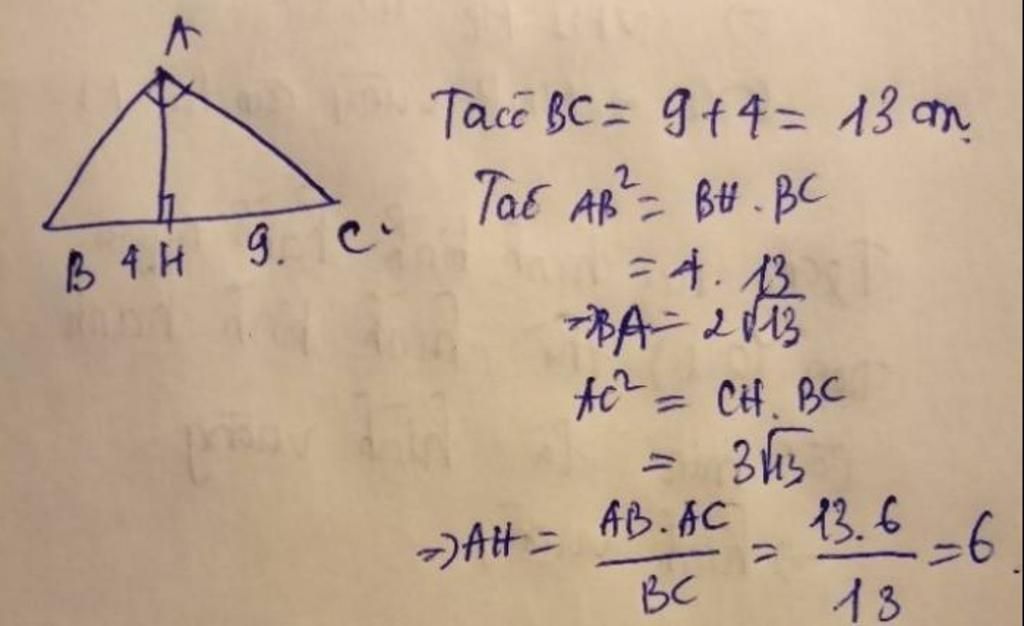 A
B 4 H 9. C.
Ta có BC = 9 + 4 = 13 cm.
Ta có AB² = BH . BC
= 4 . 13
⇒ BA = 2√13
AC² = CH . BC
= 3√13
⇒ AH = AB . AC / BC = 13 . 6 / 13 = 6.